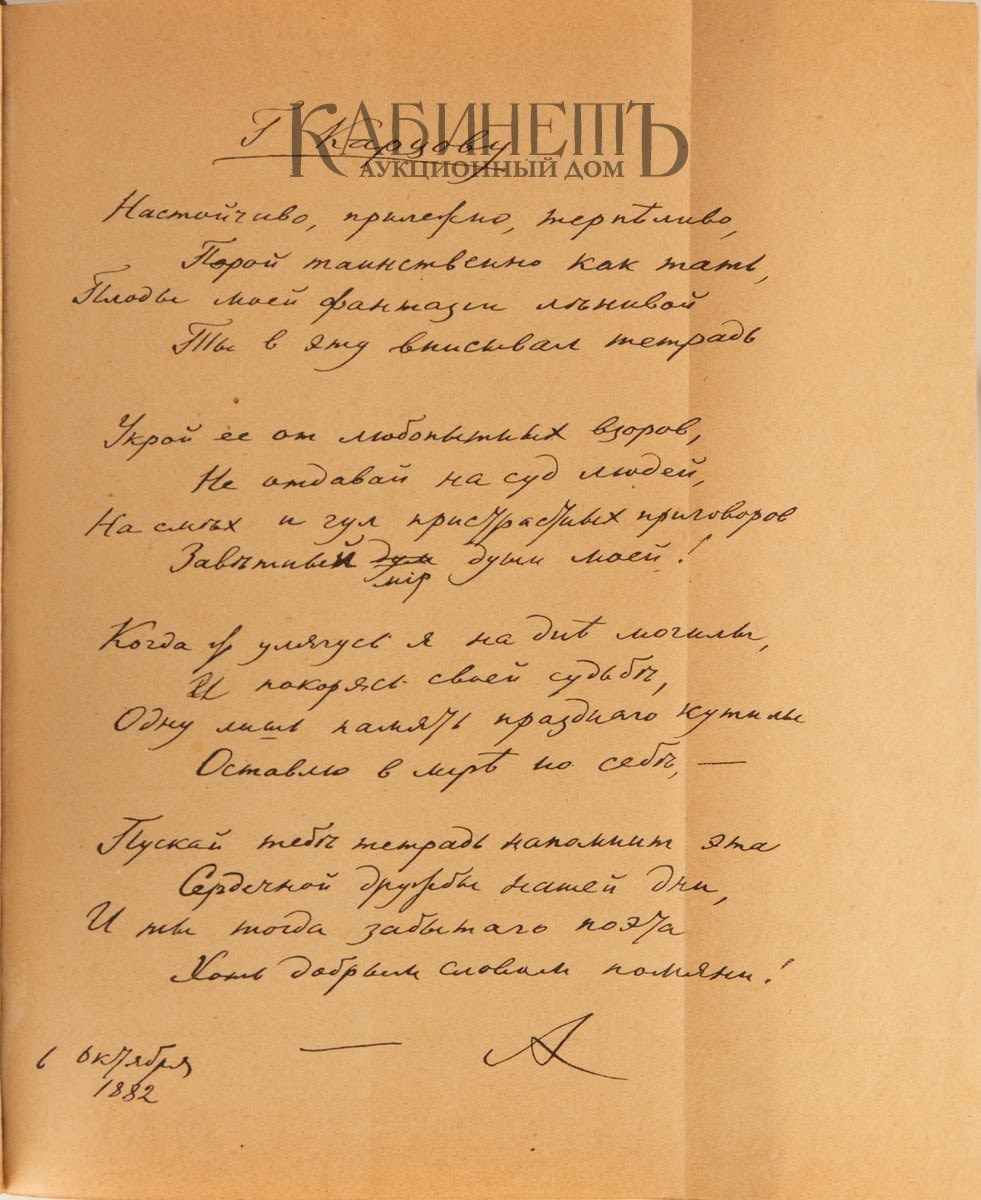 КАБИНЕТЪ
АУКЦИОННЫЙ ДОМ
Г Карцову
Настойчиво, прилежно, терпѣливо,
Порой таинственно как тать,
Плоды моей фантазіи лѣнивой
Ты в эту вписывал тетрадь
Укрой ее от любопытных взоров,
Не отдавай на суд людей,
На смѣх и гул пристрастных приговоров
Завѣтный дум души моей!
мір
Когда ж улягусь я на днѣ могилы,
И покорясь своей судьбѣ,
Одну лишь память празднаго кутилы
Оставлю в мірѣ по себѣ, —
Пускай тебѣ тетрадь напомнит эта
Сердечной дружбы нашей дни,
И ты тогда забытаго поэта
Хоть добрым словом помяни!
— А
6 октября
1882